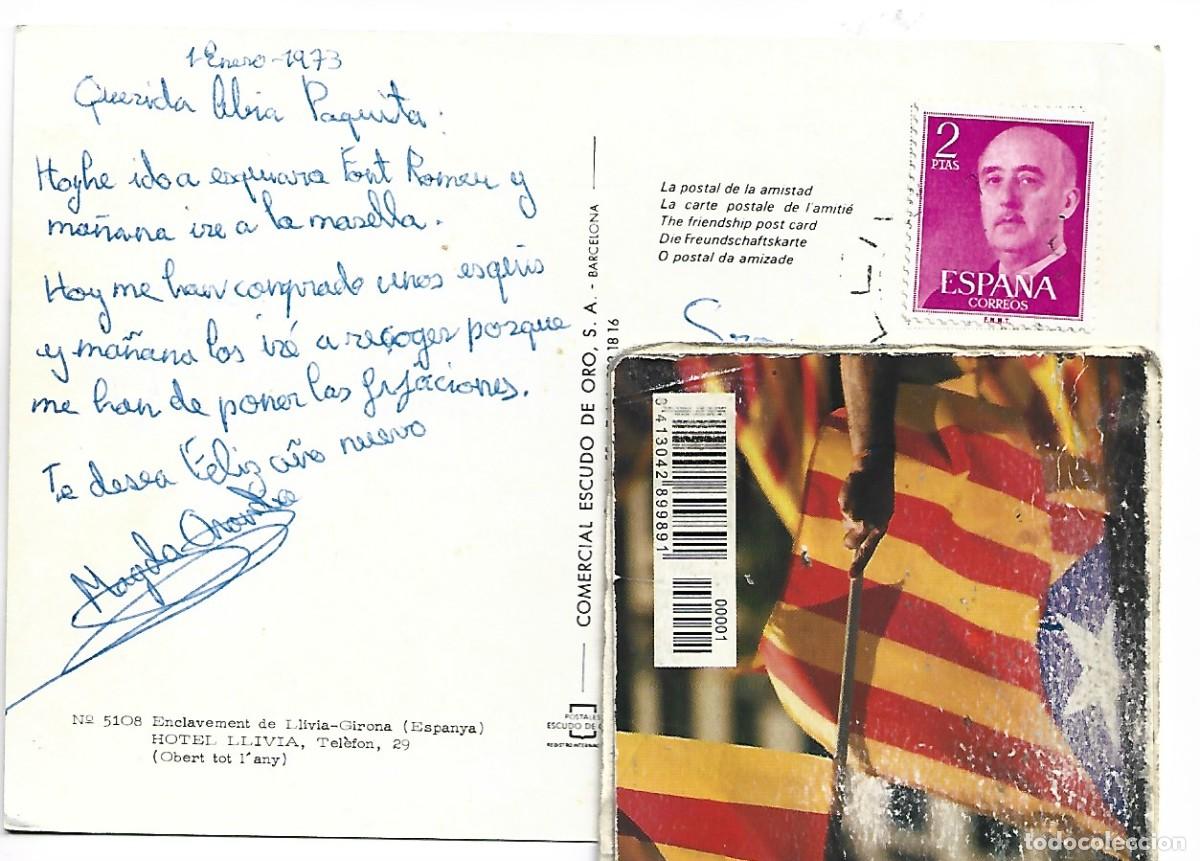 1-Enero-1973
Querida Abia Paquita:
Hoy he ido a esquiar a Font Romeu y
mañana ire a la masella.
Hoy me han comprado unos esquis
y mañana los iré a recoger porque
me han de poner las fijaciones.
Te desea Feliz año nuevo
Magda
Nº 5108 Enclavement de Llivia-Girona (Espanya)
HOTEL LLIVIA, Telèfon, 29
(Obert tot l'any)
COMERCIAL ESCUDO DE ORO, S. A. - BARCELONA
1816
POSTALES
ESCUDO DE O
REGISTRO INTERNAC
La postal de la amistad
La carte postale de l'amitié
The friendship post card
Die Freundschaftskarte
O postal da amizade
2
PTAS
ESPAÑA
CORREOS
F.N.M.T.
8 413042 899891
00001
todocoleccion